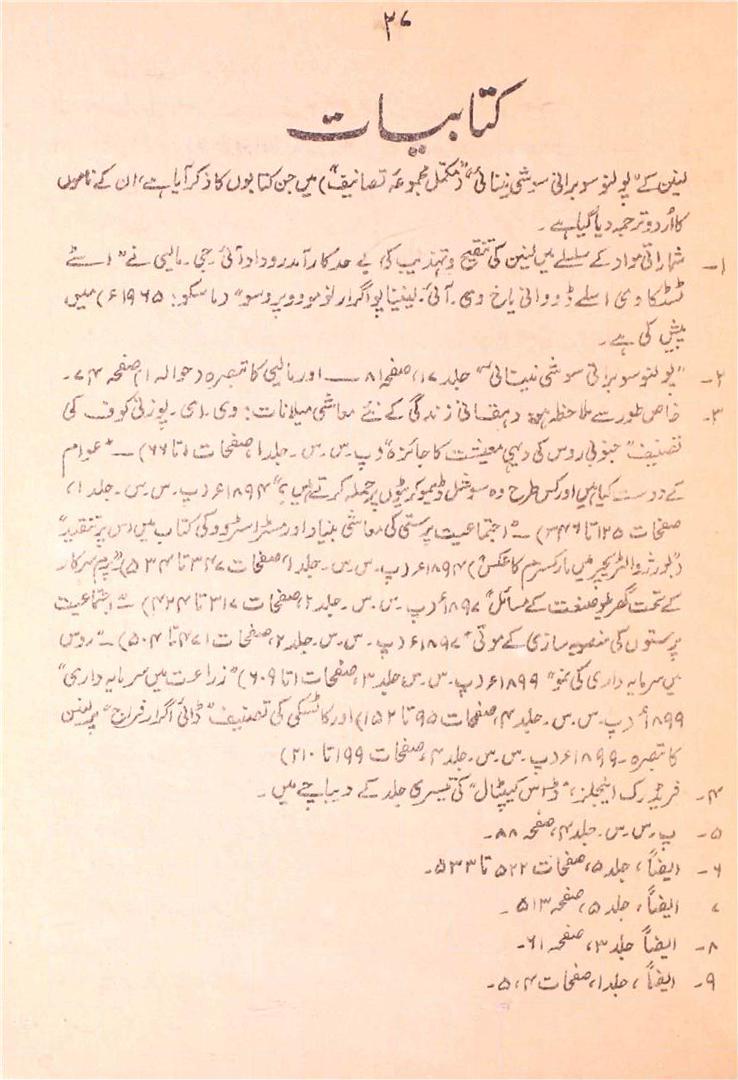 ۲۷
کتابیات
لینن کے "پولنوسوبرانی سوشی نینائی" (مکمل مجموعۂ تصانیف") میں جن کتابوں کا ذکر آیا ہے، ان کے ناموں
کا اُردو ترجمہ دیا گیا ہے۔
۱۔ شماراتی مواد کے سلسلے میں لینن کی تنقیح و تہذیب کی بے حد کارآمد روداد آئی۔جی۔مالیی نے "اسٹے
ٹسٹکا وی اسلے ڈووانی یاخ وی۔آئی۔لیننیا پو اگرارنومو وپروسو" (ماسکو: ۱۹۶۵ء) میں
پیش کی ہے۔
۲۔ "پولنوسوبرانی سوشی نینائی" جلد ۱۷، صفحہ ۸۱ — اور مالیی کا تبصرہ (حوالہ ۱) صفحہ ۷۴۔
۳۔ خاص طور سے ملاحظہ ہو: دہقانی زندگی کے نئے معاشی میلانات: وی۔ای۔پوزنی کوف کی
تصنیف "جنوبی روس کی دیہی معیشت کا جائزہ" (پ۔س۔س۔جلد ۱، صفحات ۱ تا ۶۶) — "عوام
کے دوست کیا ہیں اور کس طرح وہ سوشل ڈیموکریٹوں پر حملہ کرتے ہیں؟" ۱۸۹۴ء (پ۔س۔س۔جلد ۱،
صفحات ۱۲۵ تا ۳۴۶) — "اجتماعیت پرستی کی معاشی بنیاد اور مسٹر اسٹروو کی کتاب میں اس پر تنقید"
("بورژوا لٹریچر میں مارکسزم کا عکس") ۱۸۹۴ء (پ۔س۔س۔جلد ۱، صفحات ۳۴۷ تا ۵۳۴)
کے تحت گھریلو صنعت کے مسائل" ۱۸۹۷ء (پ۔س۔س۔جلد ۲، صفحات ۳۱۷ تا ۴۲۴) — "اجتماعیت
پرستوں کی منصوبہ سازی کے موتی" ۱۸۹۷ء (پ۔س۔س۔جلد ۲، صفحات ۴۷۱ تا ۵۰۴) — "روس
میں سرمایہ داری کی نمو" ۱۸۹۹ء (پ۔س۔س، جلد ۳، صفحات ۱ تا ۶۰۹) "زراعت میں سرمایہ داری"
۱۸۹۹ء (پ۔س۔س۔جلد ۴، صفحات ۹۵ تا ۱۵۲) اور کاٹسکی کی تصنیف "ڈائی اگرار فراج" پر لینن
کا تبصرہ۔۱۸۹۹ء (پ۔س۔س۔جلد ۴، صفحات ۱۹۹ تا ۲۱۰)
۴۔ فریڈرک اینجلز، "ڈاس کیپٹال" کی تیسری جلد کے دیباچے میں۔
۵۔ پ۔س۔س۔جلد ۴، صفحہ ۸۸۔
۶۔ ایضاً، جلد ۵، صفحات ۵۲۲ تا ۵۳۳۔
۷ ایضاً، جلد ۵، صفحہ ۵۱۳۔
۸۔ ایضاً جلد ۳، صفحہ ۶۱۔
۹۔ ایضاً، جلد ۱، صفحات ۵،۴۔